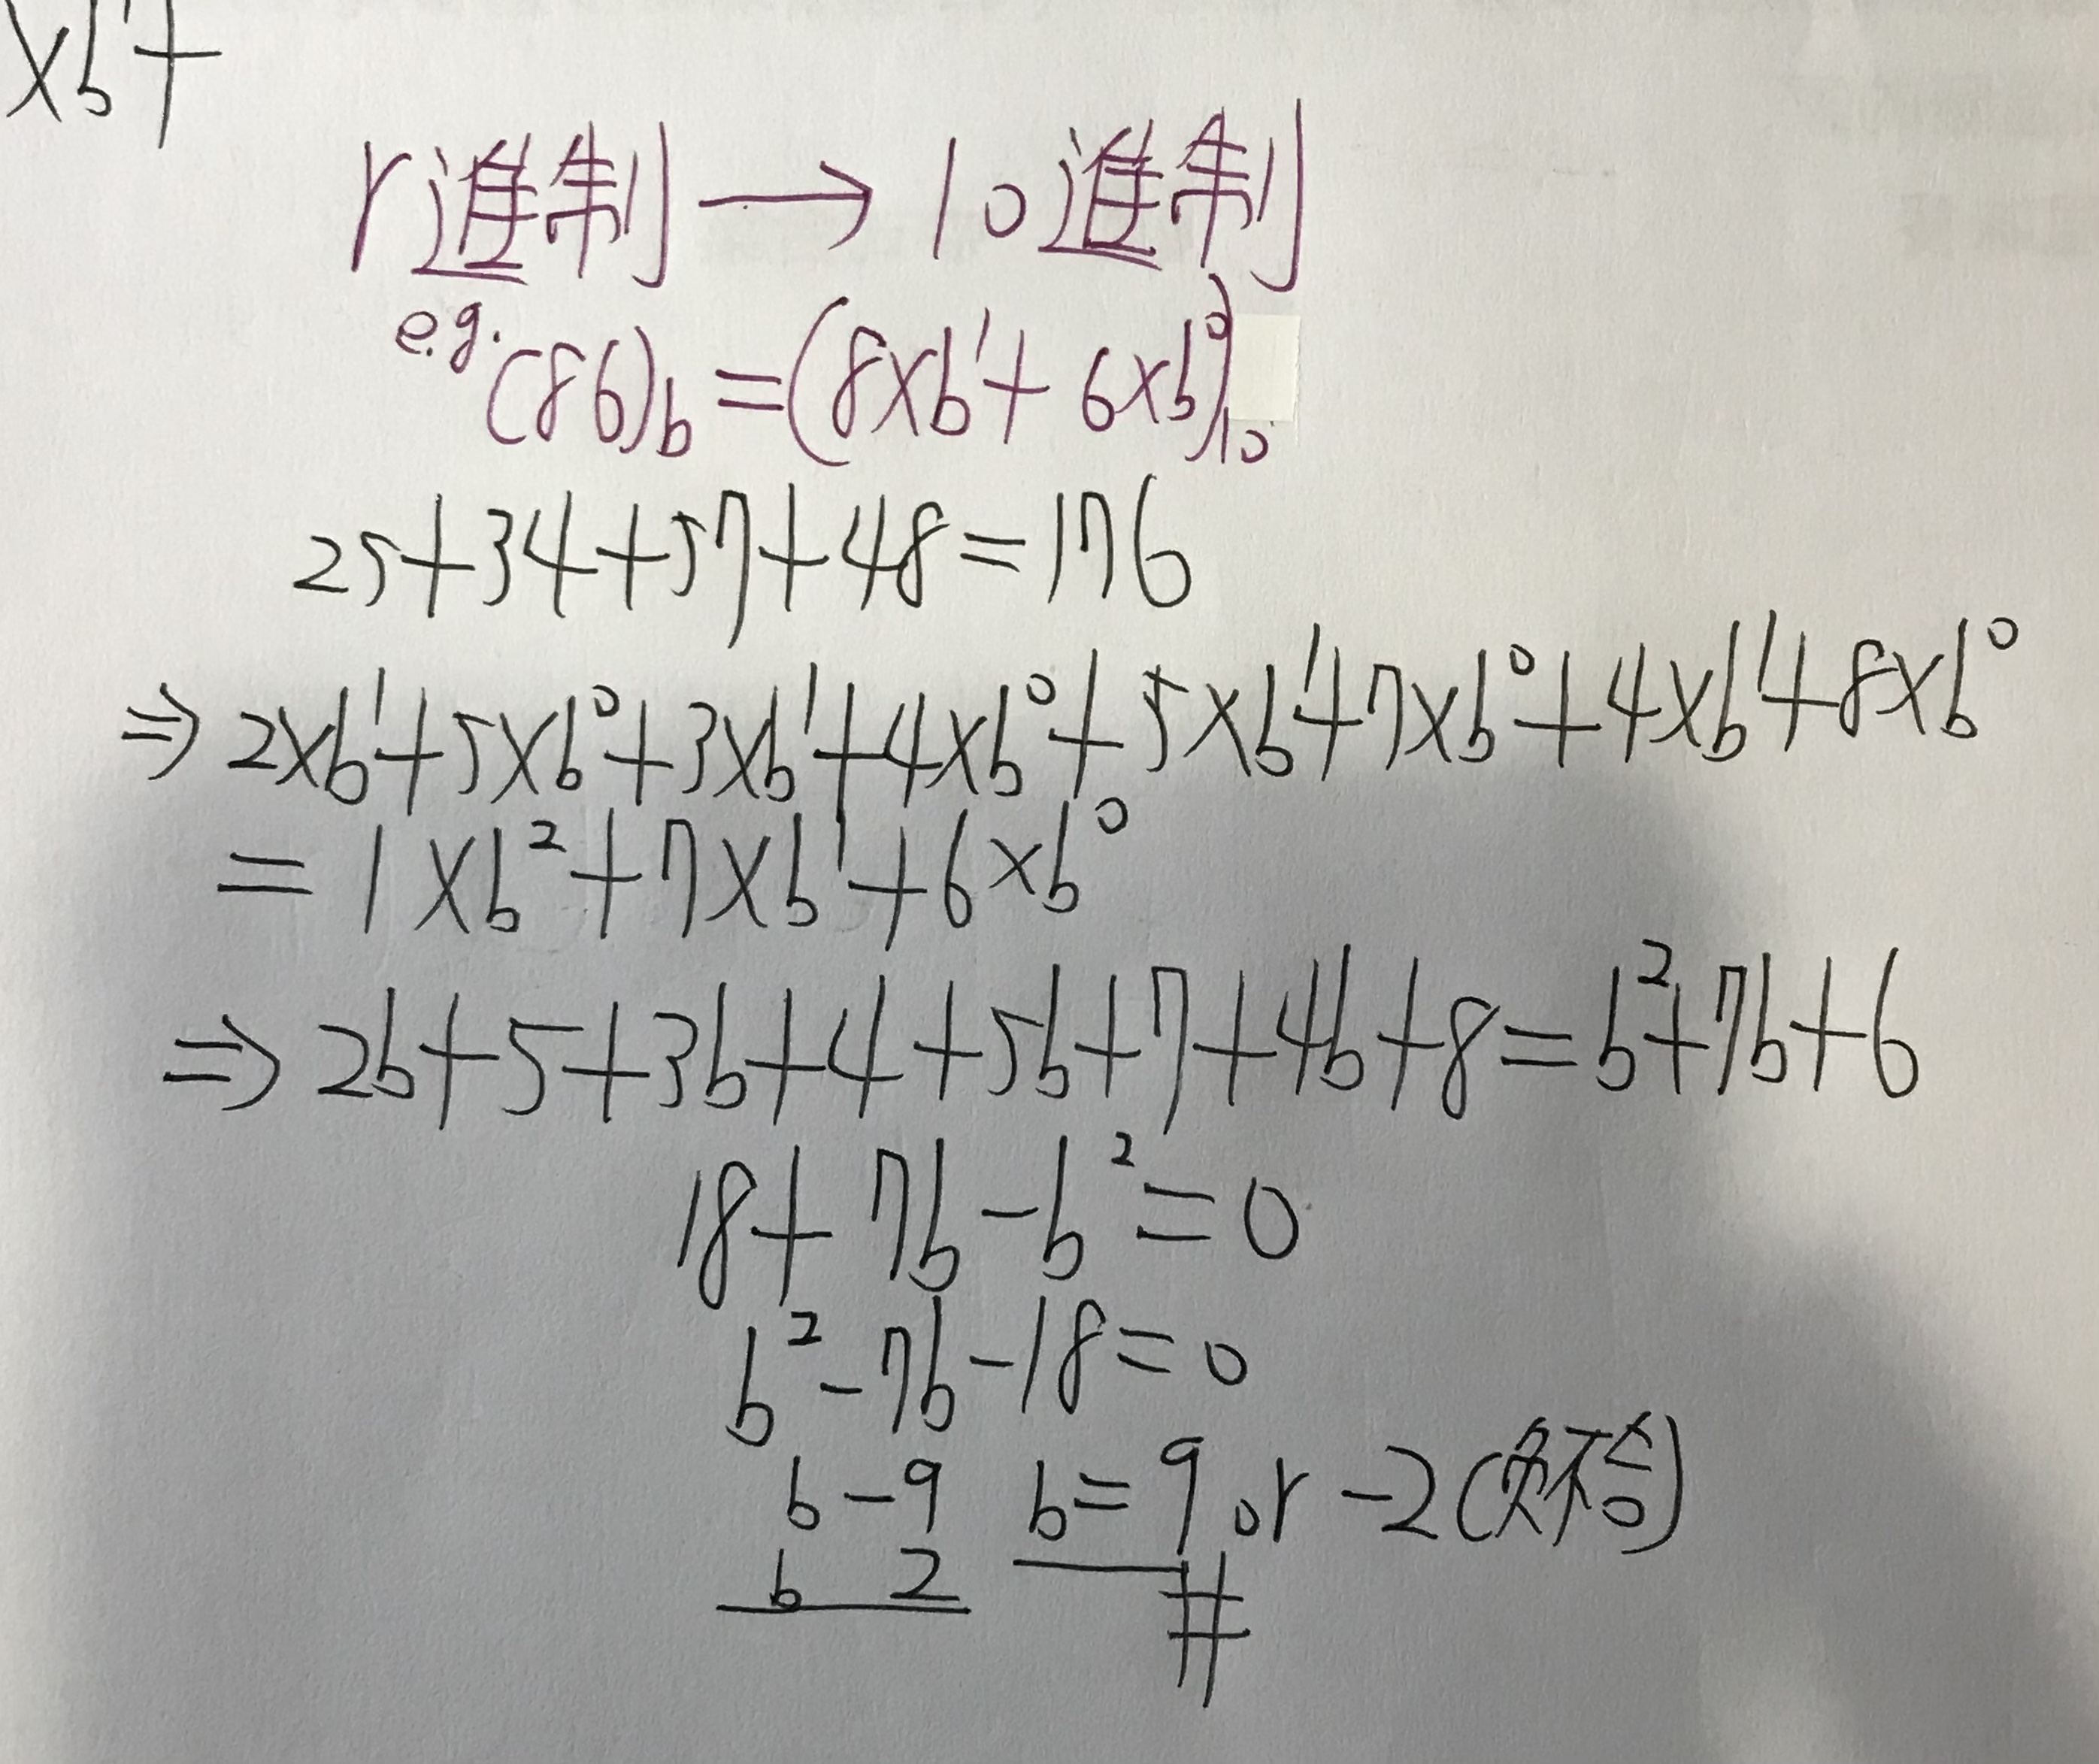 xb¹+
r進制 → 10進制
e.g. (86)b = (8xb¹+ 6xb⁰)₁₀
25+34+57+48=176
⇒ 2xb¹+5xb⁰+3xb¹+4xb⁰+5xb¹+7xb⁰+4xb¹+8xb⁰
= 1xb²+7xb¹+6xb⁰
⇒ 2b+5+3b+4+5b+7+4b+8=b²+7b+6
18+7b-b²=0
b²-7b-18=0
b-9 b=9 or -2(負不合)
b 2 #